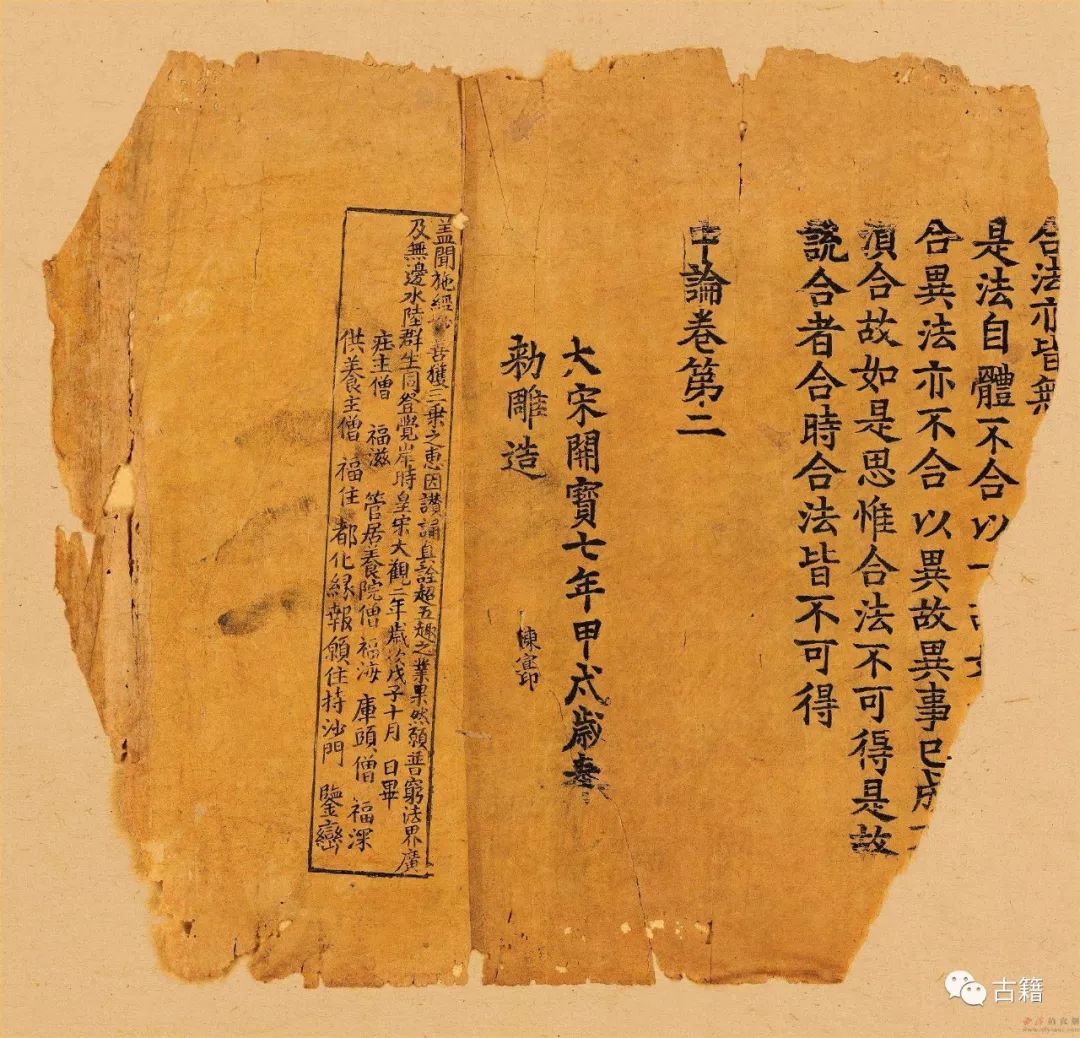 合法亦皆無
是法自體不合以一故
合異法亦不合以異故異事已成不
湏合故如是思惟合法不可得是故
說合者合時合法皆不可得
中論卷第二
大宋開寶七年甲戌歲奉
勑雕造
陳寗印
盖聞施經妙善獲三乘之惠因讚誦真詮超五趣之業果然願普窮法界廣
及無邊水陸群生同登覺岸時皇宋大觀二年歲次戊子十月 日畢
庄主僧 福滋 管居養院僧福海 庫頭僧 福深
供養主僧 福住 都化緣報願住持沙門 鑒巒
古籍